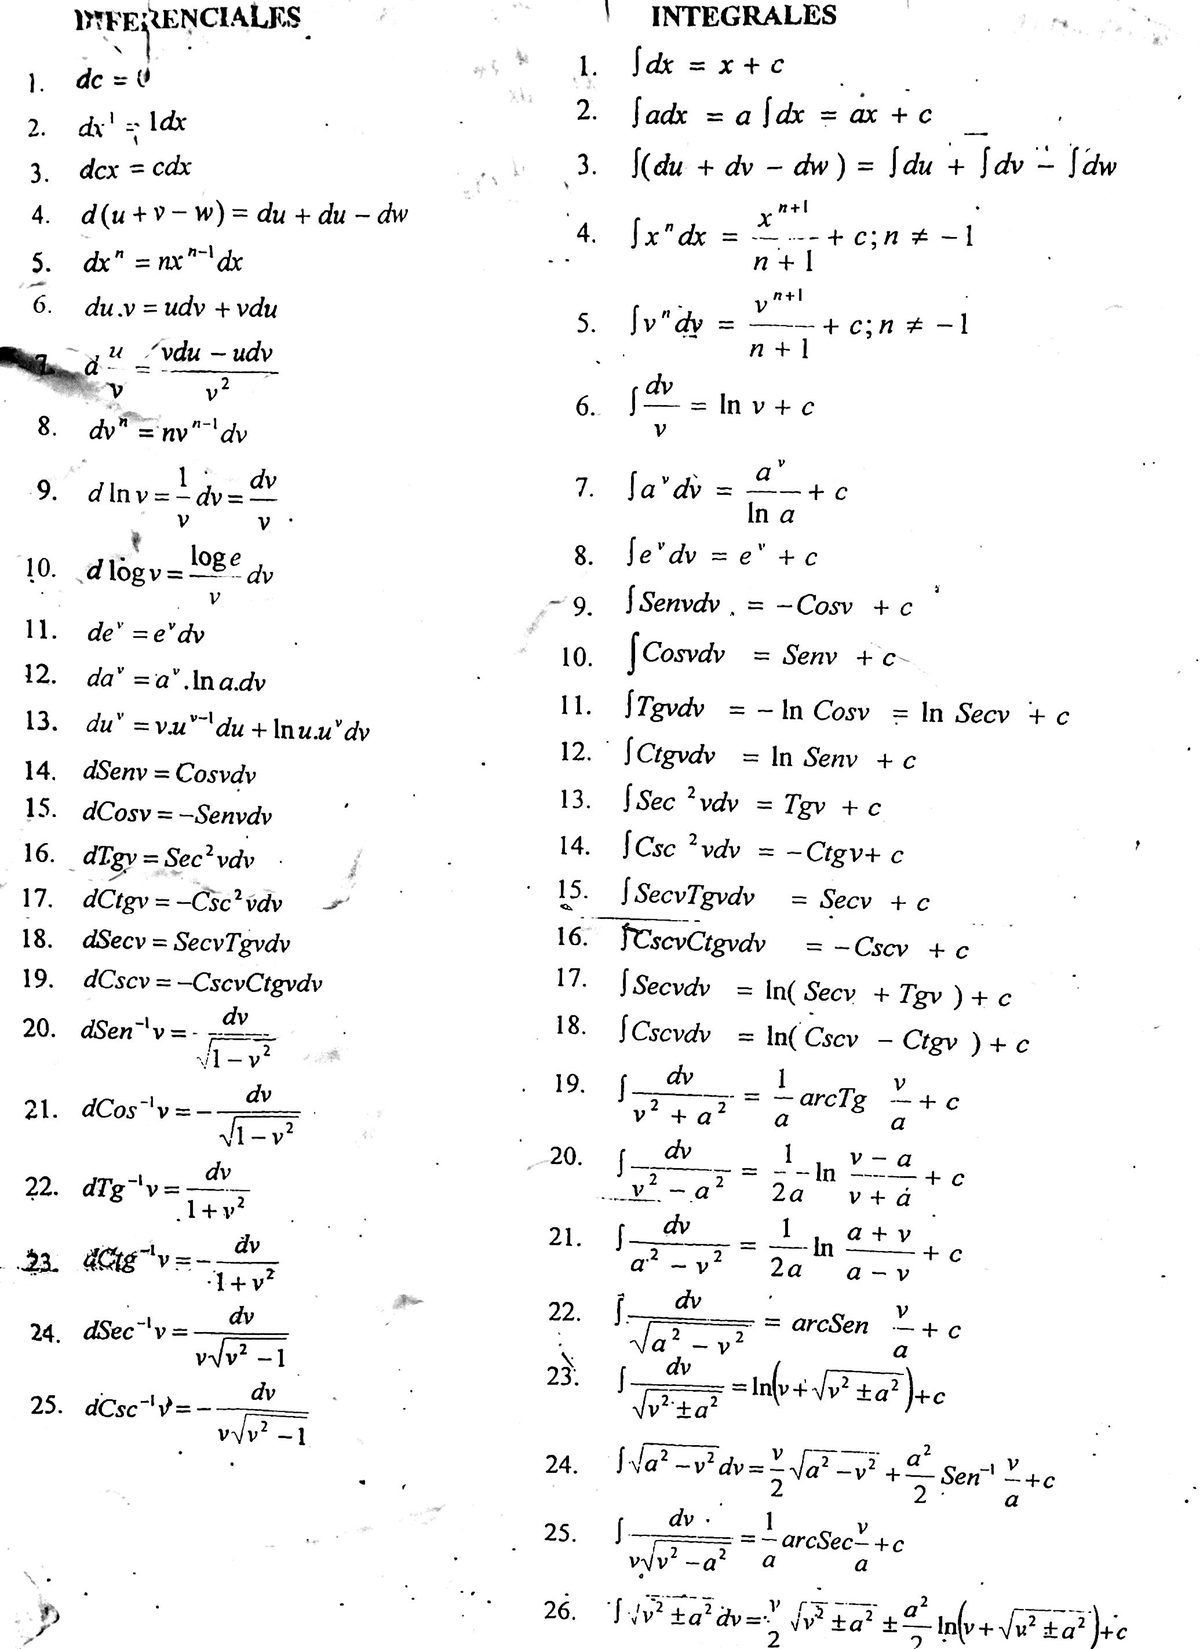 DIFERENCIALES
1. dc = 0
2. dx¹ = 1dx
3. dcx = cdx
4. d(u + v − w) = du + du − dw
5. dxⁿ = nxⁿ⁻¹dx
6. du.v = udv + vdu
7. d u/v = (vdu − udv)/v²
8. dvⁿ = nvⁿ⁻¹dv
9. d ln v = 1/v dv = dv/v
10. d log v = log e/v dv
11. deᵛ = eᵛdv
12. daᵛ = aᵛ.ln a.dv
13. duᵛ = v.uᵛ⁻¹du + ln u.uᵛdv
14. dSenv = Cosvdv
15. dCosv = −Senvdv
16. dTgv = Sec²vdv
17. dCtgv = −Csc²vdv
18. dSecv = SecvTgvdv
19. dCscv = −CscvCtgvdv
20. dSen⁻¹v = dv/√(1 − v²)
21. dCos⁻¹v = − dv/√(1 − v²)
22. dTg⁻¹v = dv/(1 + v²)
23. dCtg⁻¹v = − dv/(1 + v²)
24. dSec⁻¹v = dv/(v√(v² − 1))
25. dCsc⁻¹v = − dv/(v√(v² − 1))
INTEGRALES
1. ∫dx = x + c
2. ∫adx = a∫dx = ax + c
3. ∫(du + dv − dw) = ∫du + ∫dv − ∫dw
4. ∫xⁿdx = xⁿ⁺¹/(n + 1) + c; n ≠ −1
5. ∫vⁿdv = vⁿ⁺¹/(n + 1) + c; n ≠ −1
6. ∫dv/v = ln v + c
7. ∫aᵛdv = aᵛ/ln a + c
8. ∫eᵛdv = eᵛ + c
9. ∫Senvdv = −Cosv + c
10. ∫Cosvdv = Senv + c
11. ∫Tgvdv = − ln Cosv = ln Secv + c
12. ∫Ctgvdv = ln Senv + c
13. ∫Sec²vdv = Tgv + c
14. ∫Csc²vdv = −Ctgv + c
15. ∫SecvTgvdv = Secv + c
16. ∫CscvCtgvdv = −Cscv + c
17. ∫Secvdv = ln(Secv + Tgv) + c
18. ∫Cscvdv = ln(Cscv − Ctgv) + c
19. ∫dv/(v² + a²) = 1/a arcTg v/a + c
20. ∫dv/(v² − a²) = 1/2a ln (v − a)/(v + a) + c
21. ∫dv/(a² − v²) = 1/2a ln (a + v)/(a − v) + c
22. ∫dv/√(a² − v²) = arcSen v/a + c
23. ∫dv/√(v² ± a²) = ln(v + √(v² ± a²)) + c
24. ∫√(a² − v²)dv = v/2 √(a² − v²) + a²/2 Sen⁻¹ v/a + c
25. ∫dv/(v√(v² − a²)) = 1/a arcSec v/a + c
26. ∫√(v² ± a²)dv = v/2 √(v² ± a²) ± a²/2 ln(v + √(u² ± a²)) + c